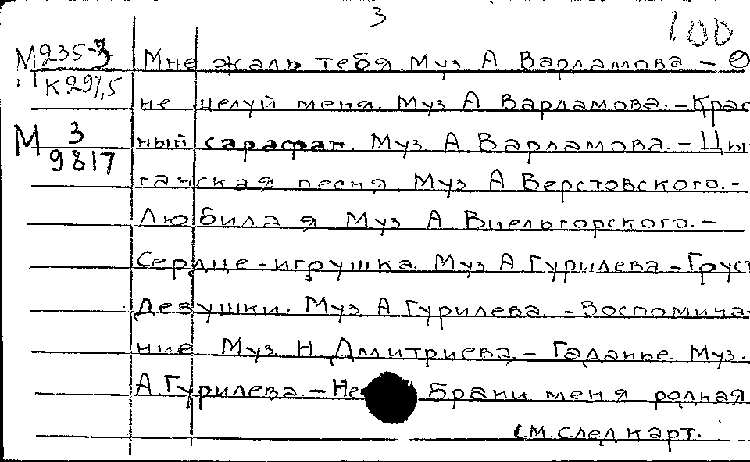 3
100
М235-3 Мне жаль тебя Муз А Варламова - О
К291,5 не целуй меня. Муз А Варламова. - Крас
М 3/9817 ный сарафан. Муз. А. Варламова. - Цы
ганская песня Муз А Верстовского. -
Любила я Муз А Виельгорского. -
Сердце - игрушка. Муз А Гурилева - Груст
девушки. Муз. А Гурилева. - Воспомина-
ние Муз. Н. Дмитриева. - Гаданье. Муз.
А. Гурилева - Не брани меня родная
см. след карт.